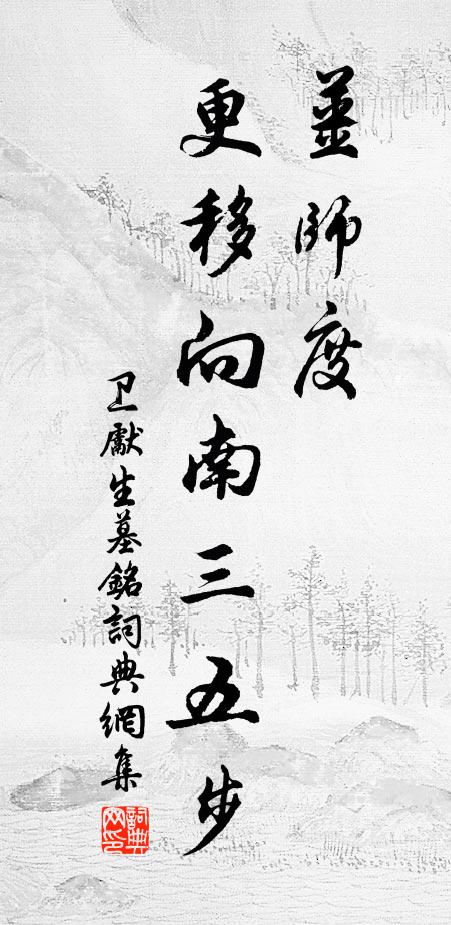 薑師度
更移向南三五步
卫獻生墓銘詞典網集
詞典
网印